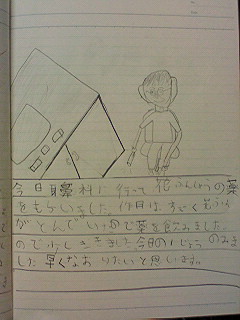 今日耳鼻科に行って花ふんしょうの薬
をもらいました。作日は、すごく花ふん
がとんでいたので薬を飲みました。
ので少しききました今日の1じょうのみま
した早くなおりたいと思います。